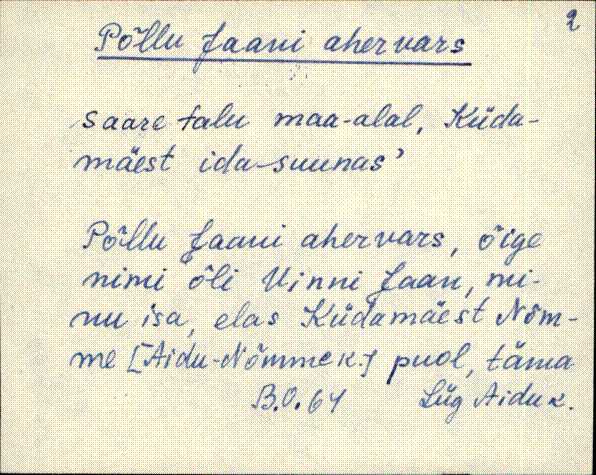 2
Põllu Jaani ahervars
Saare talu maa-alal, Küda-
mäest ida-suunas'
Põllu Jaani ahervars, õige
nimi õli Vinni Jaan, mi-
nu isa, elas Küdamäest Nõm-
me [Aidu-Nõmme k.] puol, täma
B.O. 64 Lüg Aidu k.